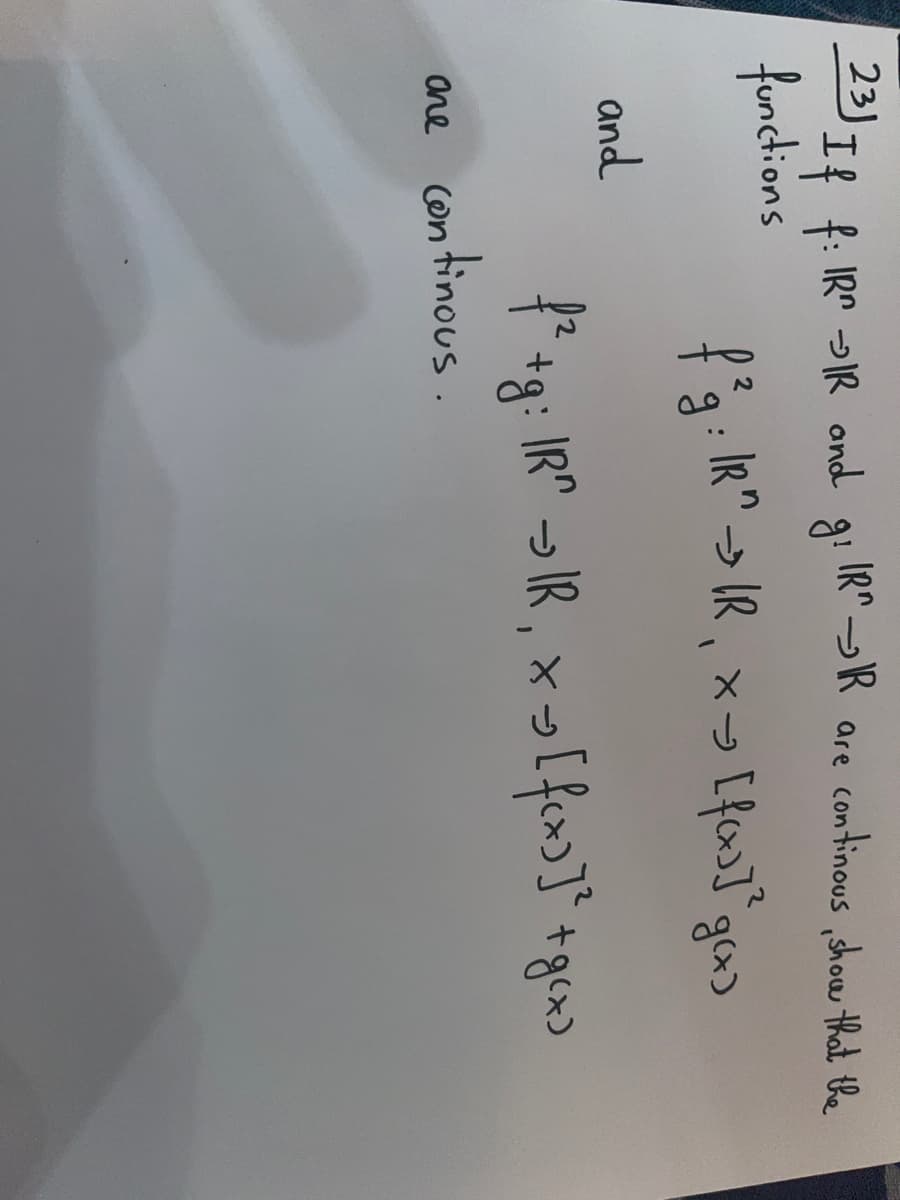 23) If f: ℝⁿ → ℝ and g: ℝⁿ → ℝ are continous, show that the
functions
f²g: ℝⁿ → ℝ, x → [f(x)]² g(x)
and
f² + g: ℝⁿ → ℝ, x → [f(x)]² + g(x)
are continous.